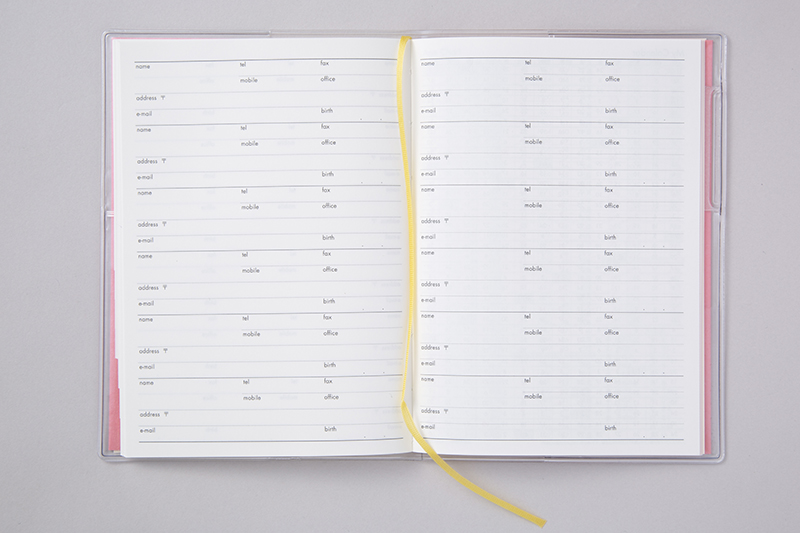 name tel fax
mobile office
address 〒
e-mail birth
name tel fax
mobile office
address 〒
e-mail birth
name tel fax
mobile office
address 〒
e-mail birth
name tel fax
mobile office
address 〒
e-mail birth
name tel fax
mobile office
address 〒
e-mail birth
name tel fax
mobile office
address 〒
e-mail birth
name tel fax
mobile office
address 〒
e-mail birth
name tel fax
mobile office
address 〒
e-mail birth
name tel fax
mobile office
address 〒
e-mail birth
name tel fax
mobile office
address 〒
e-mail birth
name tel fax
mobile office
address 〒
e-mail birth
name tel fax
mobile office
address 〒
e-mail birth